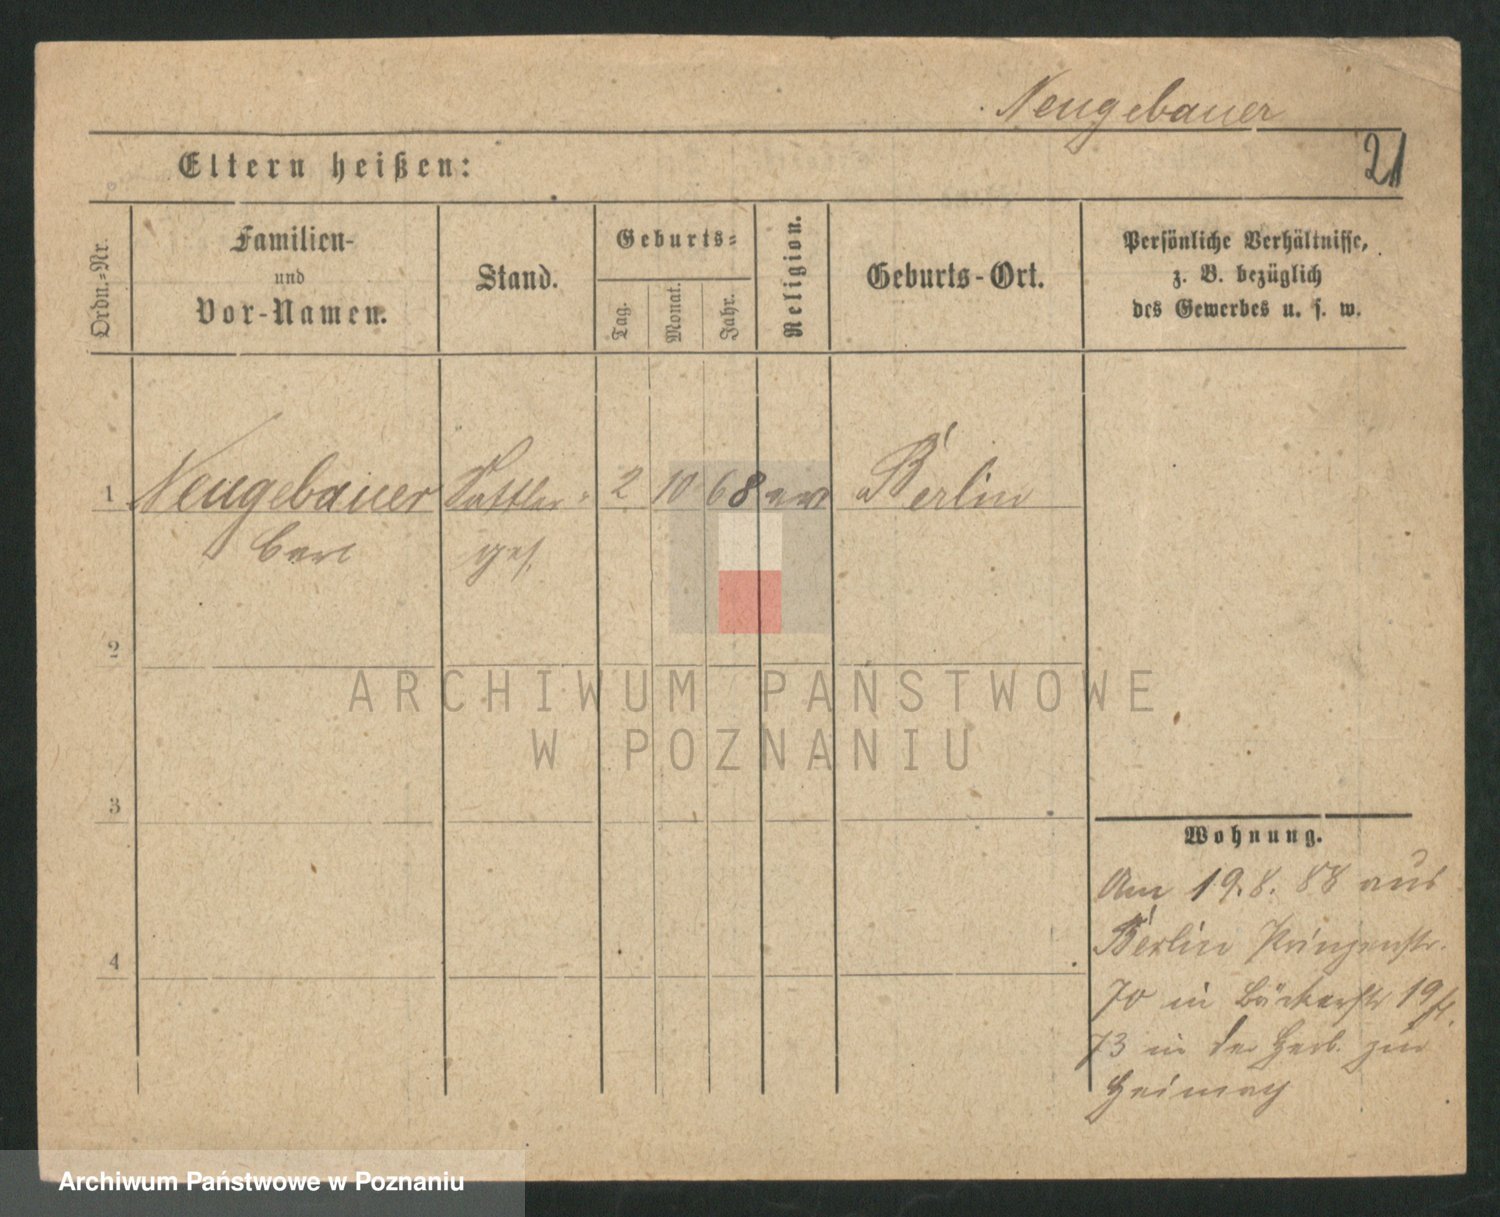 Neugebauer
21
Eltern heißen:
Ordn.-Nr.
Familien-
und
Vor-Namen.
Stand.
Geburts-
Tag.
Monat.
Jahr.
Religion.
Geburts-Ort.
Persönliche Verhältnisse,
z. B. bezüglich
des Gewerbes u. s. w.
1 Neugebauer Sattler- 2 10 68 ev Berlin
Carl ges.
2
ARCHIWUM PAŃSTWOWE
W POZNANIU
3
Wohnung.
Am 19.8.88 aus
Berlin Prinzenstr.
4
70 in Bäckerstr 19
73 in der Herb. zur
Archiwum Państwowe w Poznaniu